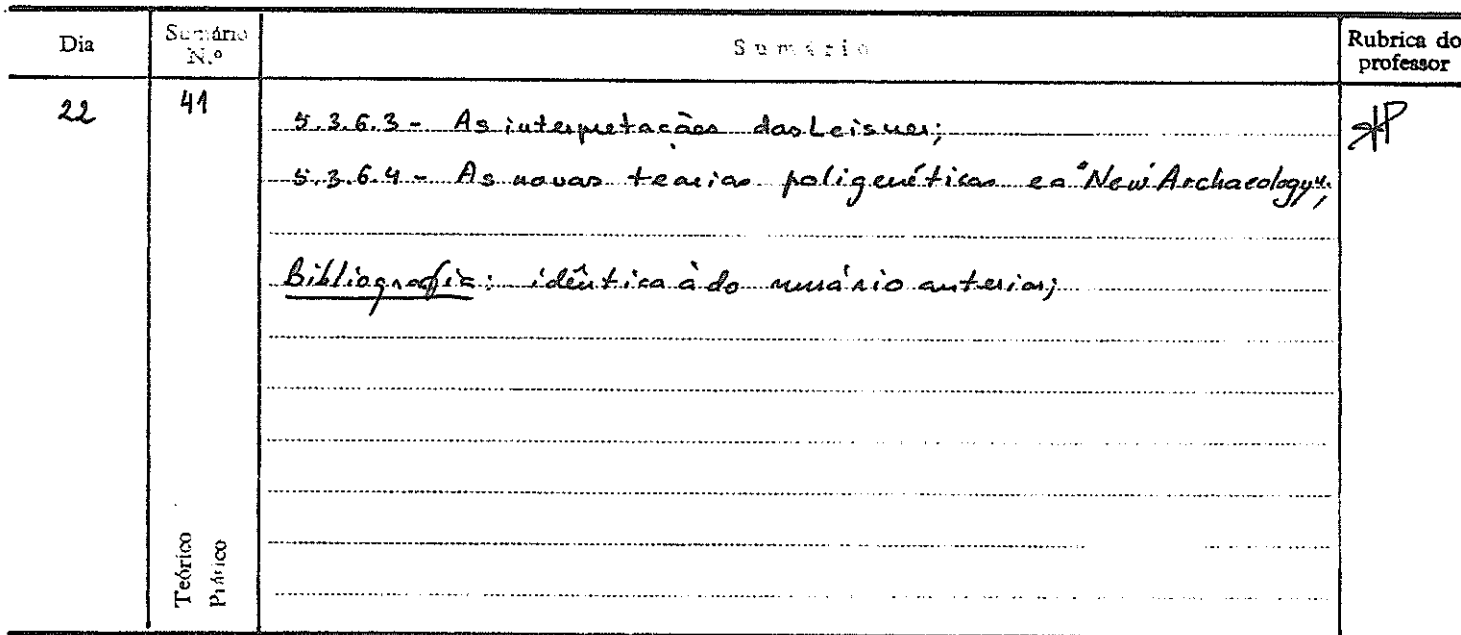 Dia
Sumário N.º
Sumário
Rubrica do professor
22
41
5.3.6.3 - As interpretações dos Leisner;
5.3.6.4 - As novas teorias poligenéticas e a "New Archaeology";
Bibliografia: idêntica à do sumário anterior;
Teórico
Prático